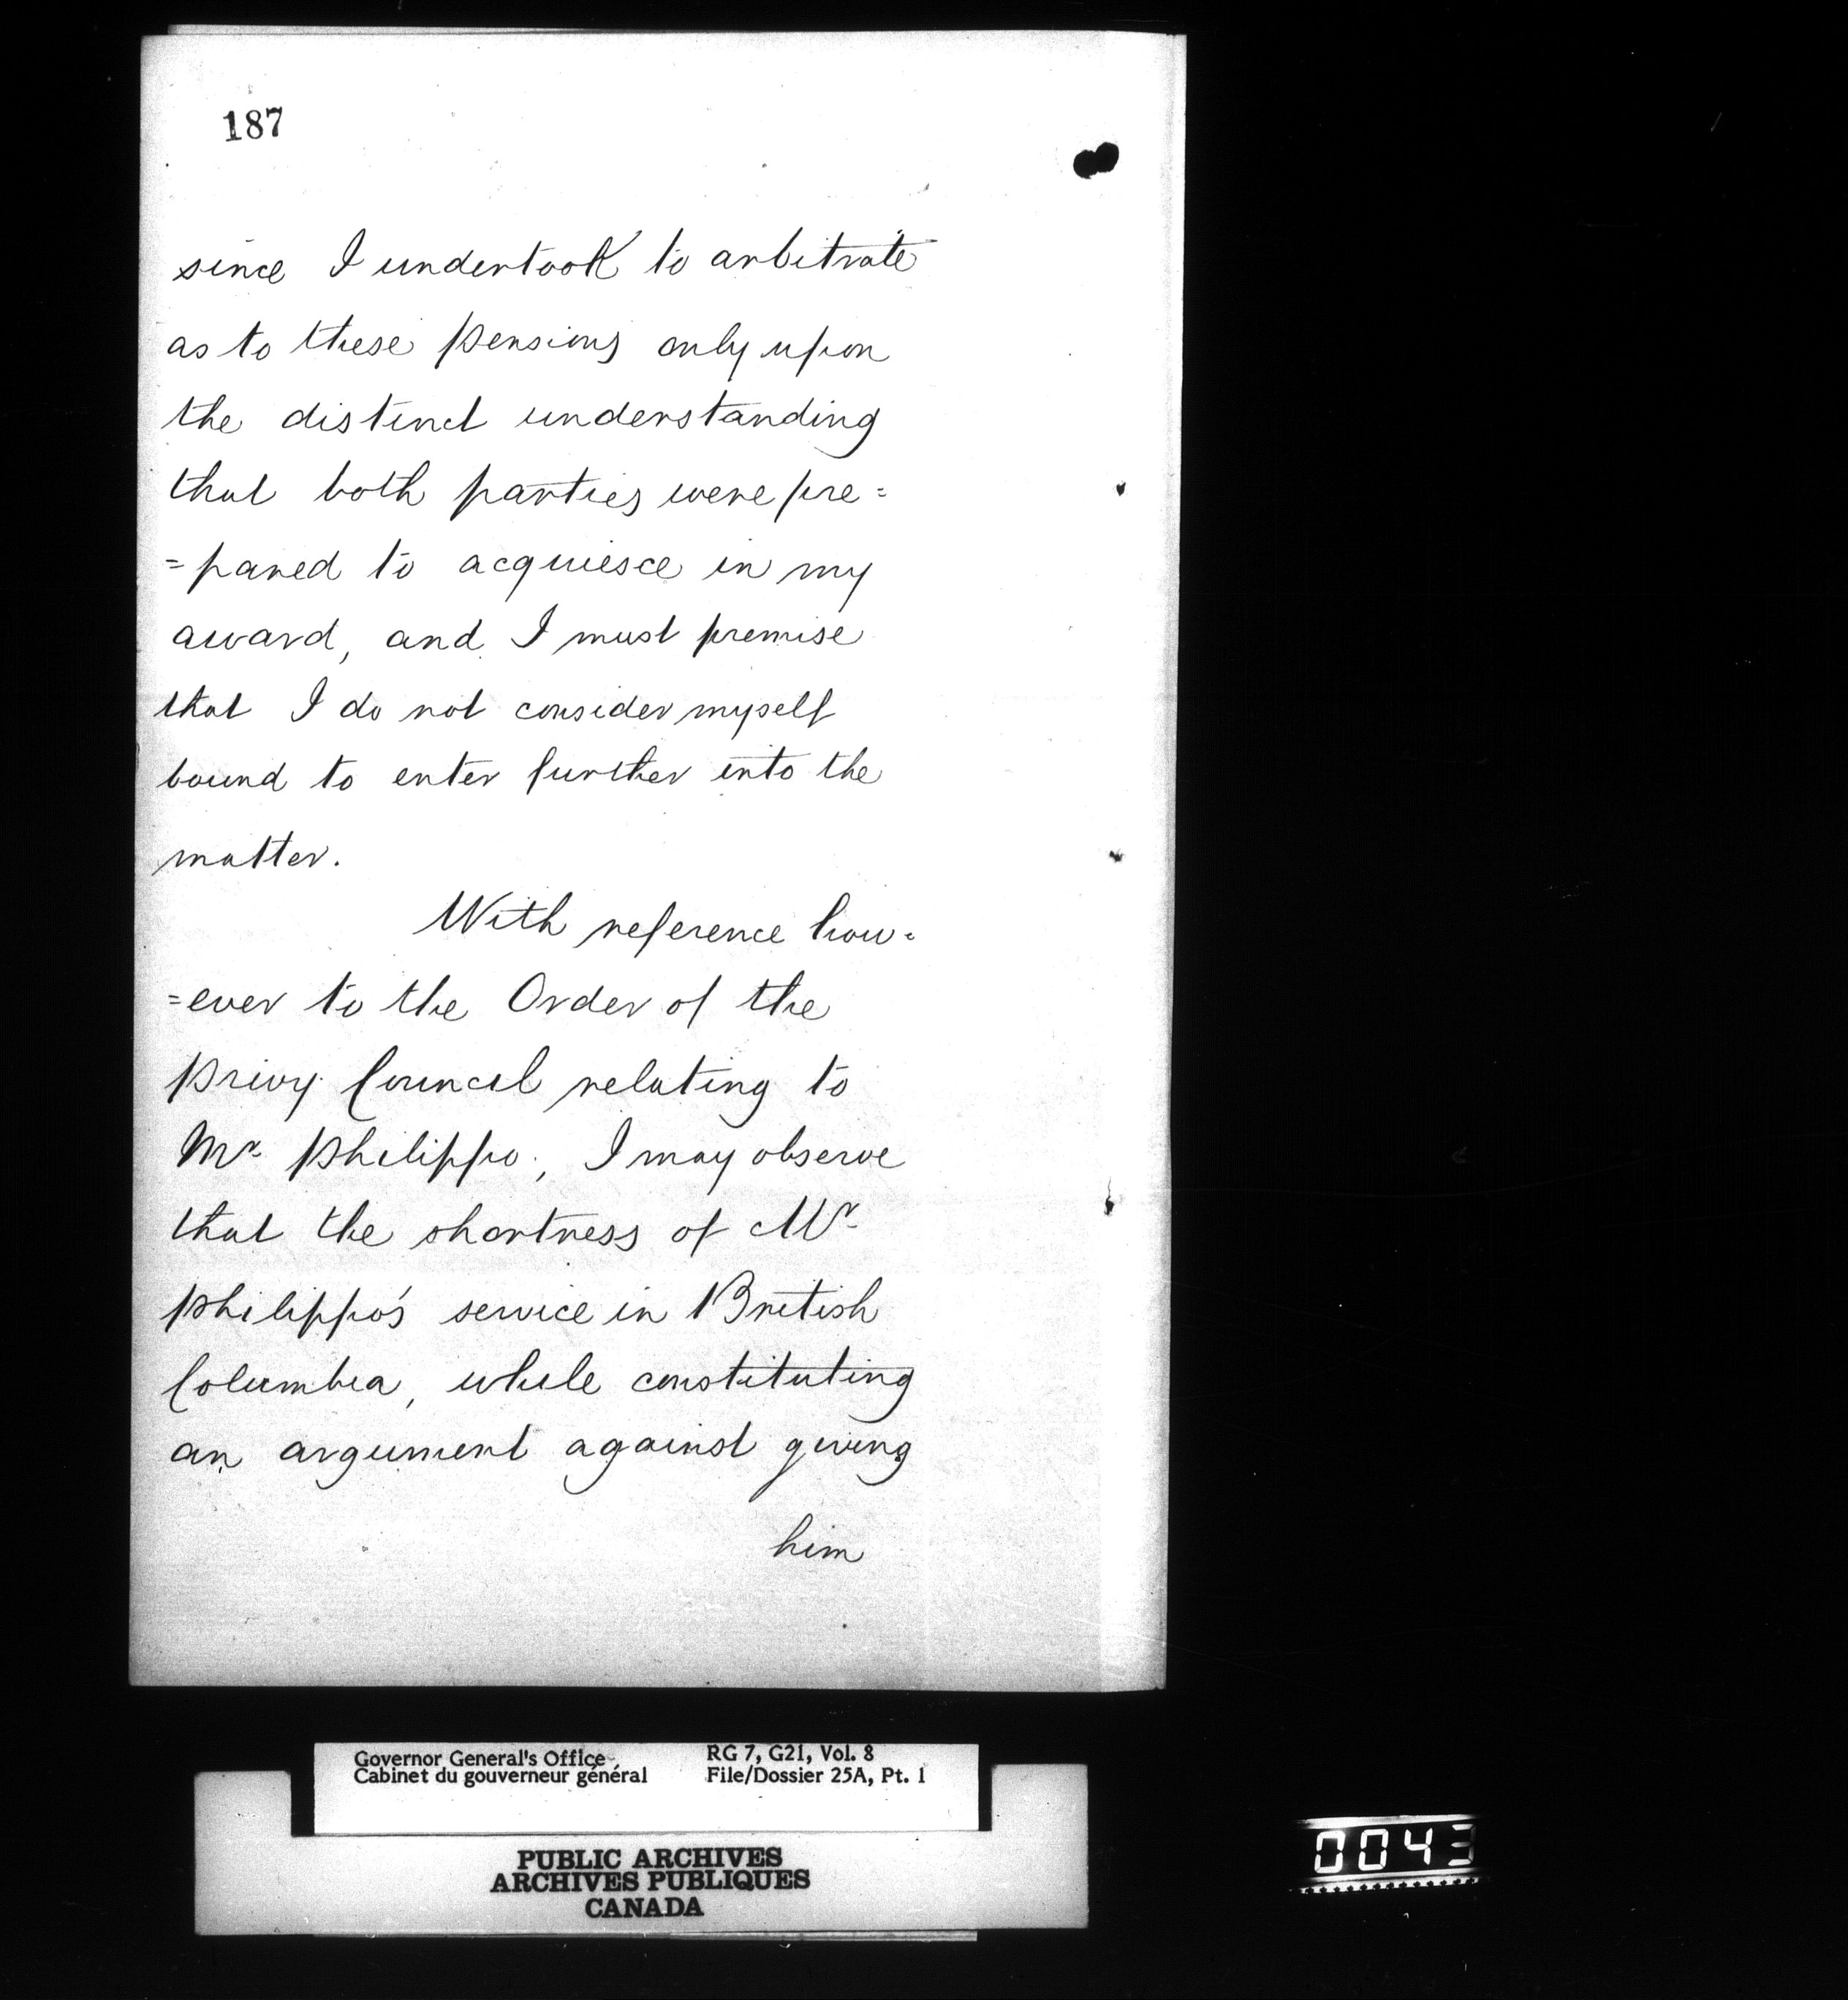 187
since I undertook to arbitrate
as to these pensions only upon
the distinct understanding
that both parties were pre=
=pared to acquiesce in my
award, and I must premise
that I do not consider myself
bound to enter further into the
matter.
With reference how=
=ever to the Order of the
Privy Council relating to
Mr. Philippo, I may observe
that the shortness of Mr.
Philippo's service in British
Columbia, while constituting
an argument against giving
him
Governor General's Office
Cabinet du gouverneur général
RG 7, G21, Vol. 8
File/Dossier 25A, Pt. 1
PUBLIC ARCHIVES
ARCHIVES PUBLIQUES
CANADA
0043